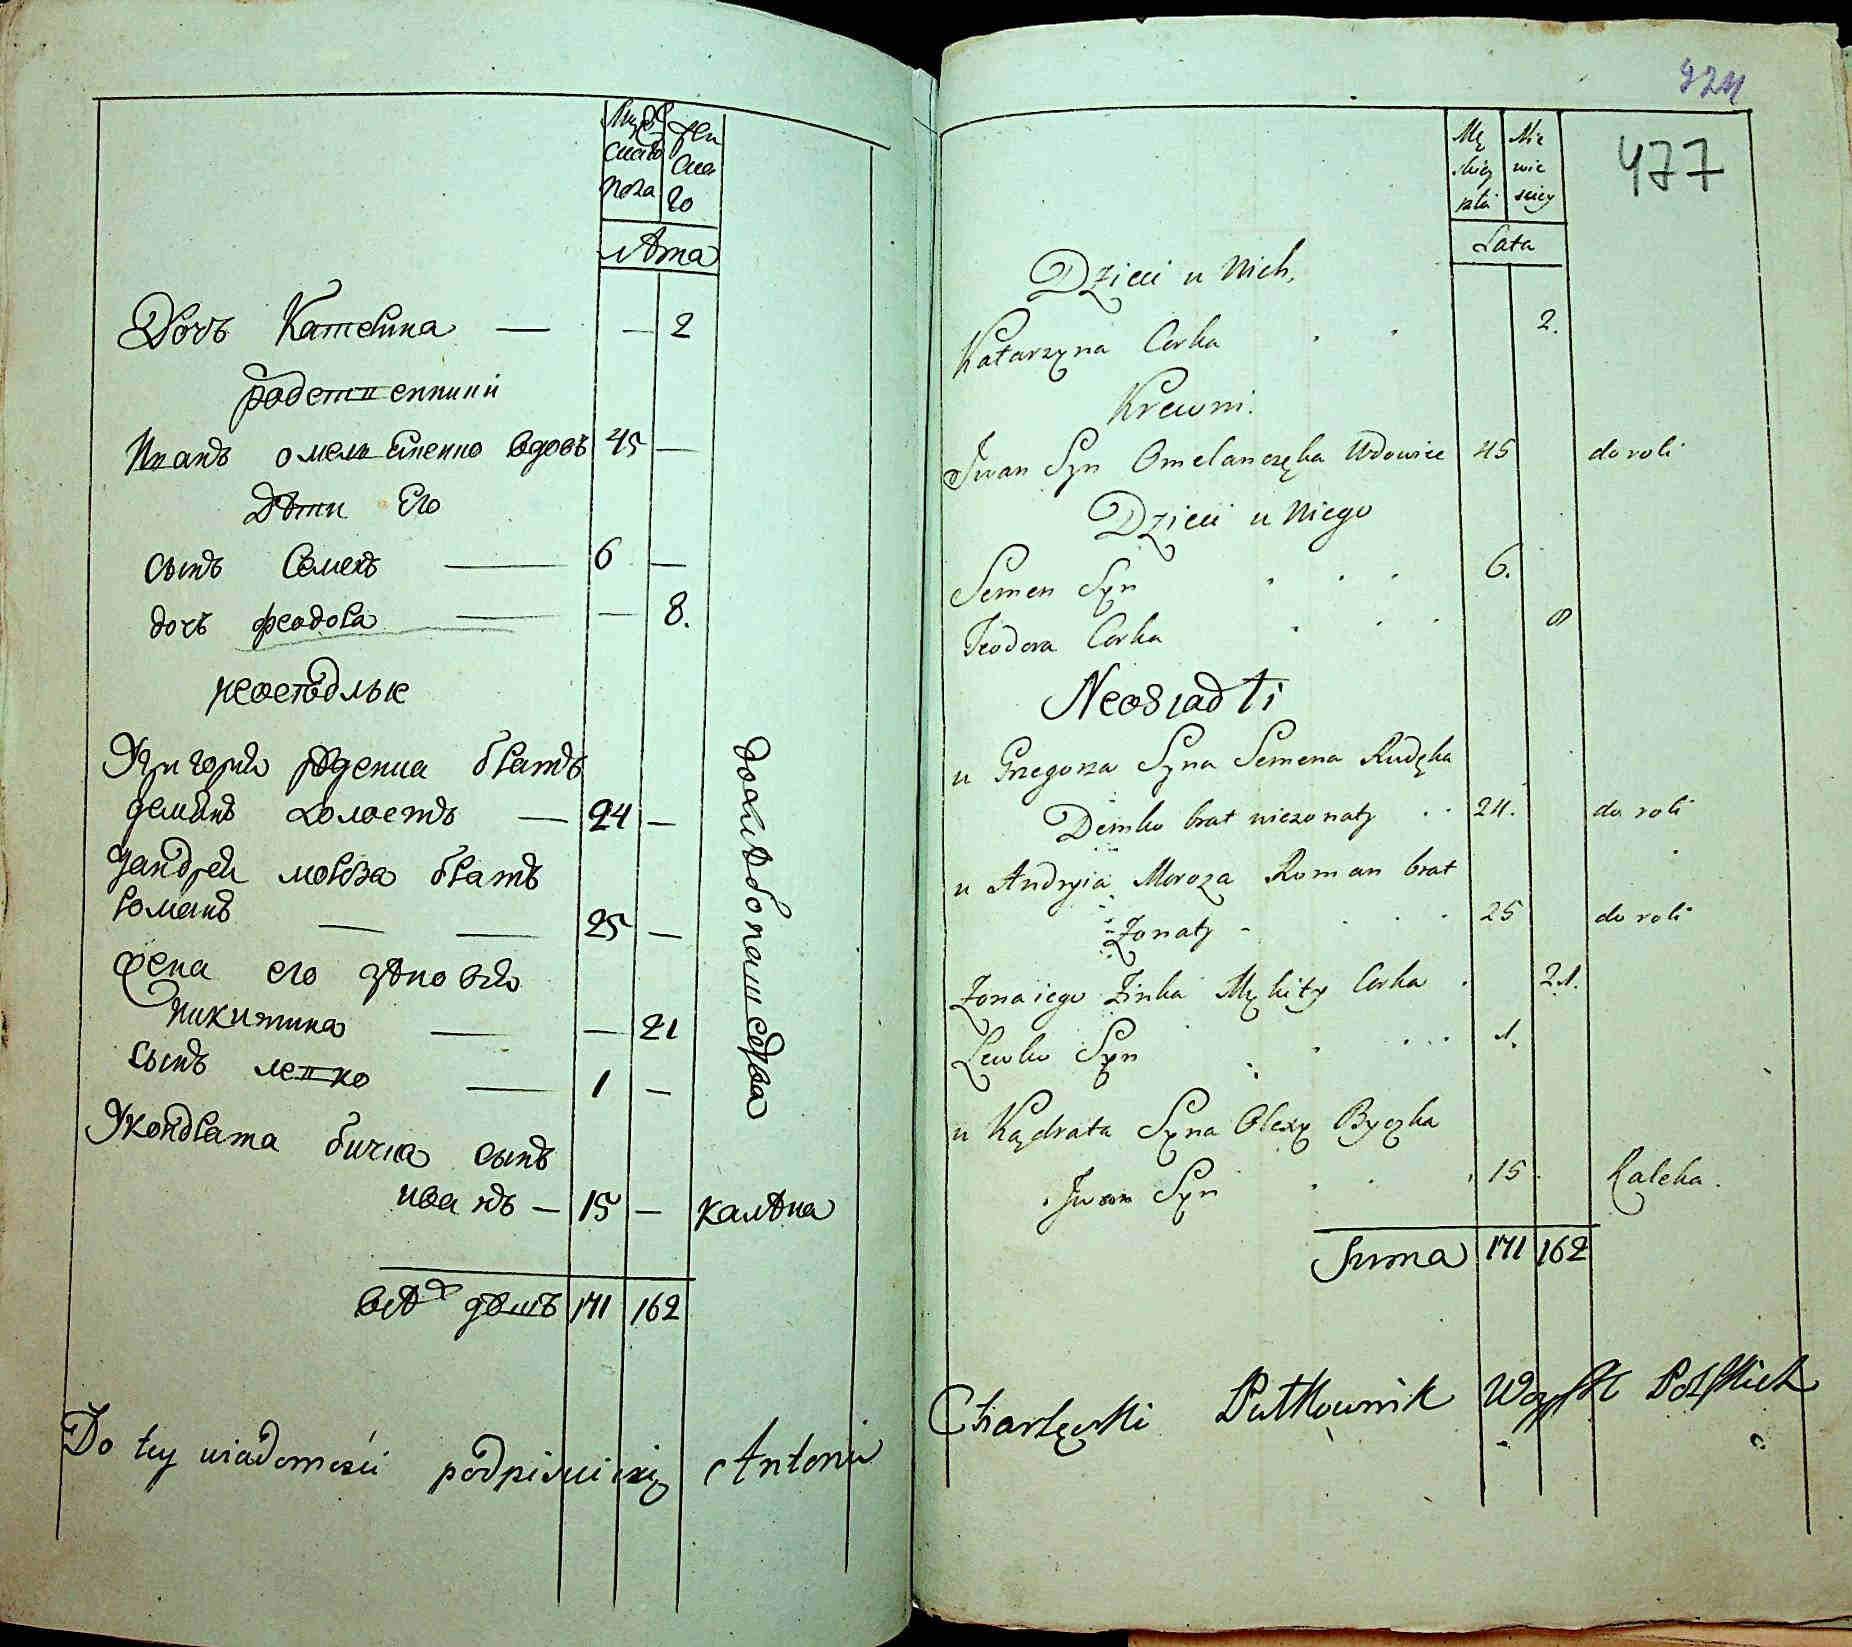 Мужскаго пола | женскаго
Лѣта
Дочь Катерина — — 2
родственники
Иванъ омельяненко вдовъ 45 —
Дѣти Его
сынъ Семенъ — 6 —
дочь феодора — — 8.
неосѣдлые
У григория руденка братъ
демянъ холостъ — 24 —
У андрея мороза братъ
романъ — — 25 —
жена его зѣновия
никитина — — 21
сынъ левко — 1 —
У кондрата бичка сынъ
иванъ — 15 — калѣка
всѣхъ душъ 171 162
Do tey wiadomości podpisuię się Antoni
924
477
Męskiey płci | Niewieściey
Lata
Dzieci u Nich,
Katarzyna Corka . . 2.
Krewni.
Iwan Syn Omelanczęka Wdowiec 45 do roli
Dzieci u Niego
Semen Syn . . . 6.
Teodora Corka . . . 8
Neosiadli
u Grzegorza Syna Semena Rudęka
Demko brat nieżonaty . . 24. do roli
u Andryia Moroza Roman brat
Żonaty - . . . 25 do roli
Żona iego Zinka Mykity Corka . 21.
Lewko Syn . . . . . 1.
u Kądrata Syna Olexy Byczka
Iwan Syn . . . 15. Kaleka.
Suma 171 162
Charlęski Pułkownik Woysk Polskich